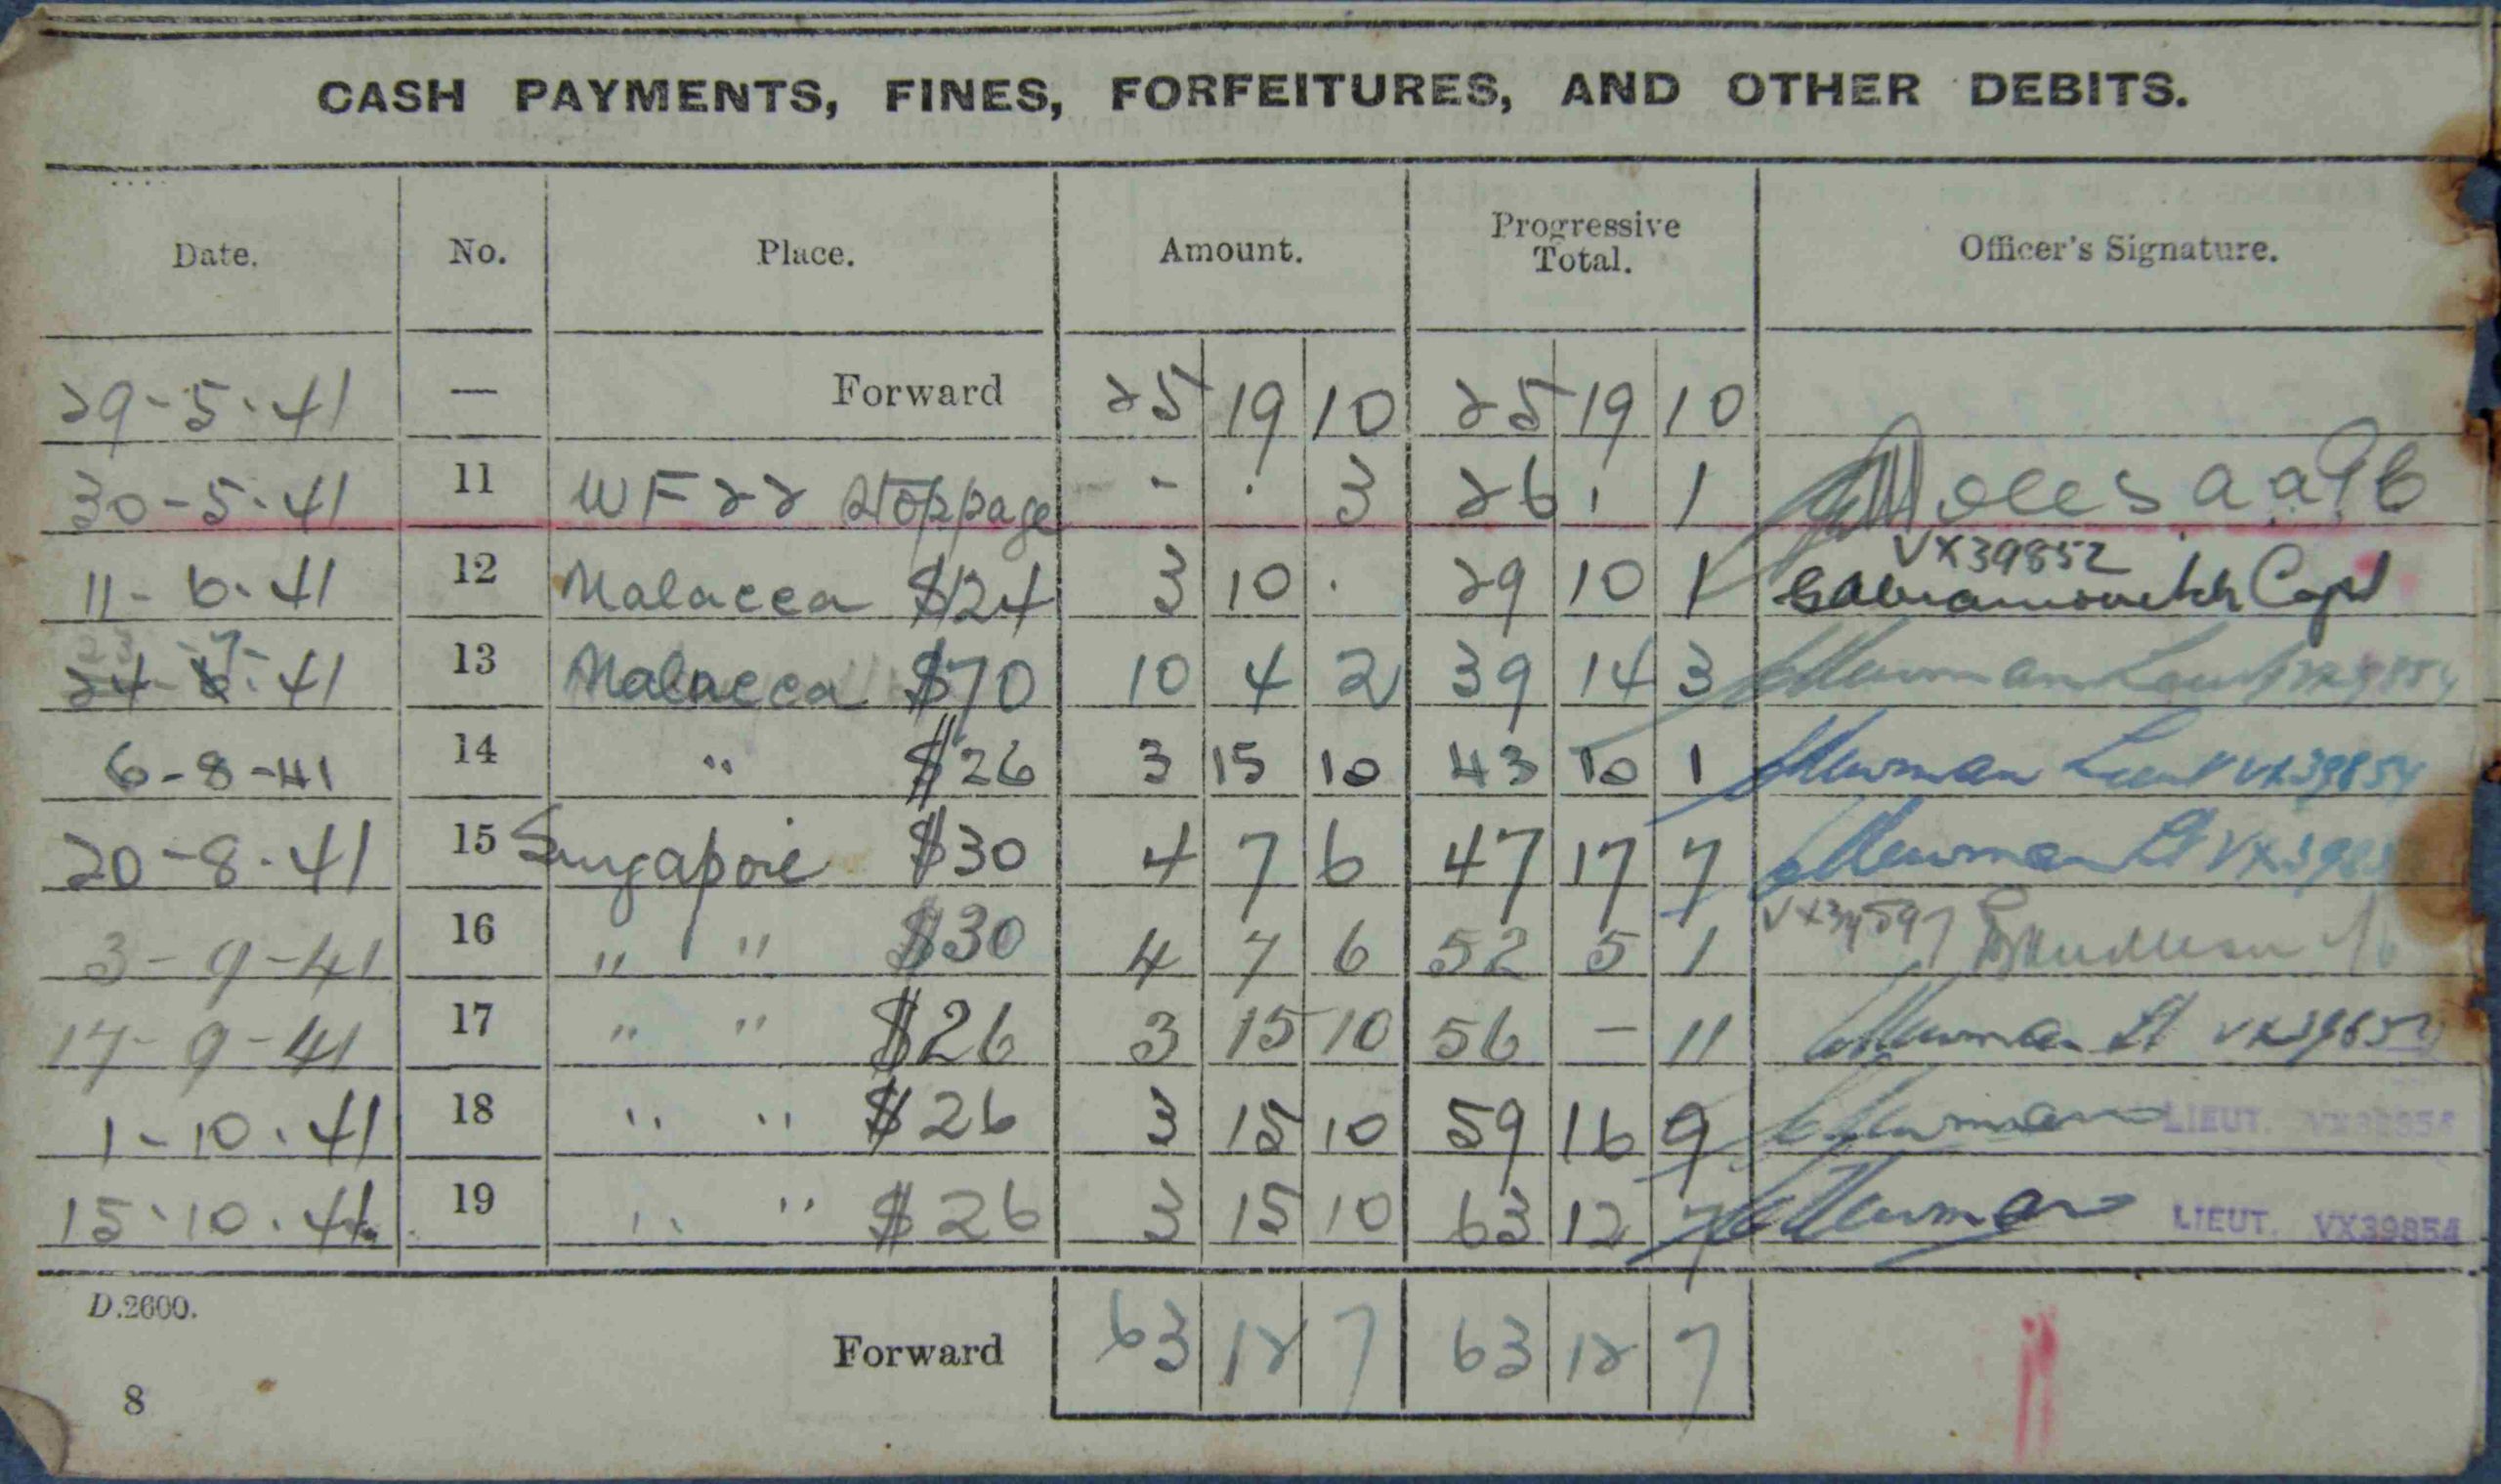 CASH PAYMENTS, FINES, FORFEITURES, AND OTHER DEBITS.
Date. No. Place. Amount. Progressive Total. Officer's Signature.
29-5-41 — Forward 25 19 10 25 19 10
30-5-41 11 WF22 Stoppage - . 3 26 . 1
11-6-41 12 Malacca $24 3 10 . 29 10 1 VX39852 Capt
41 13 Malacca $70 10 4 2 39 14 3 Newman Lieut
6-8-41 14 " $26 3 15 10 43 10 1 Newman Lieut VX39854
20-8-41 15 Singapore $30 4 7 6 47 17 7 Newman Lt
3-9-41 16 " " $30 4 7 6 52 5 1
17-9-41 17 " " $26 3 15 10 56 - 11 Newman Lt
1-10-41 18 " " $26 3 15 10 59 16 9 Newman LIEUT. VX39854
15-10-41 19 " " $26 3 15 10 63 12 7 Newman LIEUT. VX39854
D.2600.
Forward 63 12 7 63 12 7
8